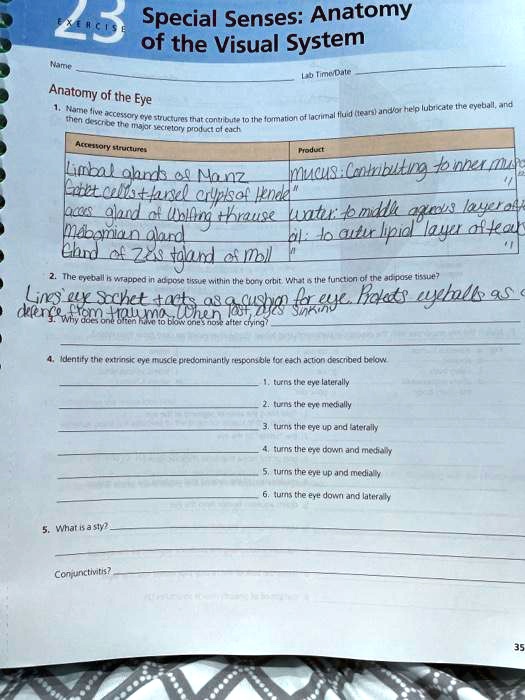 EXERCISE 23
Special Senses: Anatomy
of the Visual System
Name
Lab Time/Date
Anatomy of the Eye
1. Name five accessory eye structures that contribute to the formation of lacrimal fluid (tears) and/or help lubricate the eyeball, and
then describe the major secretory product of each
Accessory structures Product
Limbal glands of Manz mucus: Contributing to inner
Goblet cells + tarsel crypts of Henele "
gland of Wolfing + krause water: to middle layer of
gland oil: to outer lipid layer of tear
Gland of Zeis + gland of Moll "
2. The eyeball is wrapped in adipose tissue within the bony orbit. What is the function of the adipose tissue?
Lines eye Socket + acts as a cushion for eye. Protects eyeballs as
from trauma. When lost, eyes sinking
3. Why does one often have to blow one's nose after crying?
4. Identify the extrinsic eye muscle predominantly responsible for each action described below.
1. turns the eye laterally
2. turns the eye medially
3. turns the eye up and laterally
4. turns the eye down and medially
5. turns the eye up and medially
6. turns the eye down and laterally
5. What is a sty?
Conjunctivitis?
35